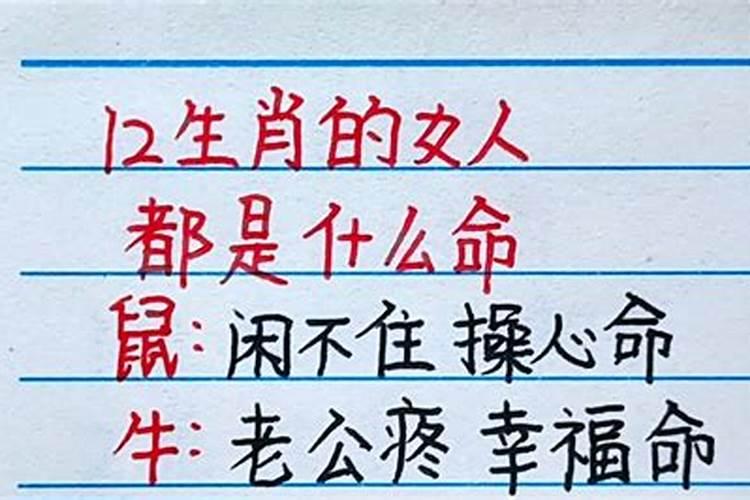 12生肖的女人
都是什么命
鼠:闲不住 操心命
牛:老公疼 幸福命